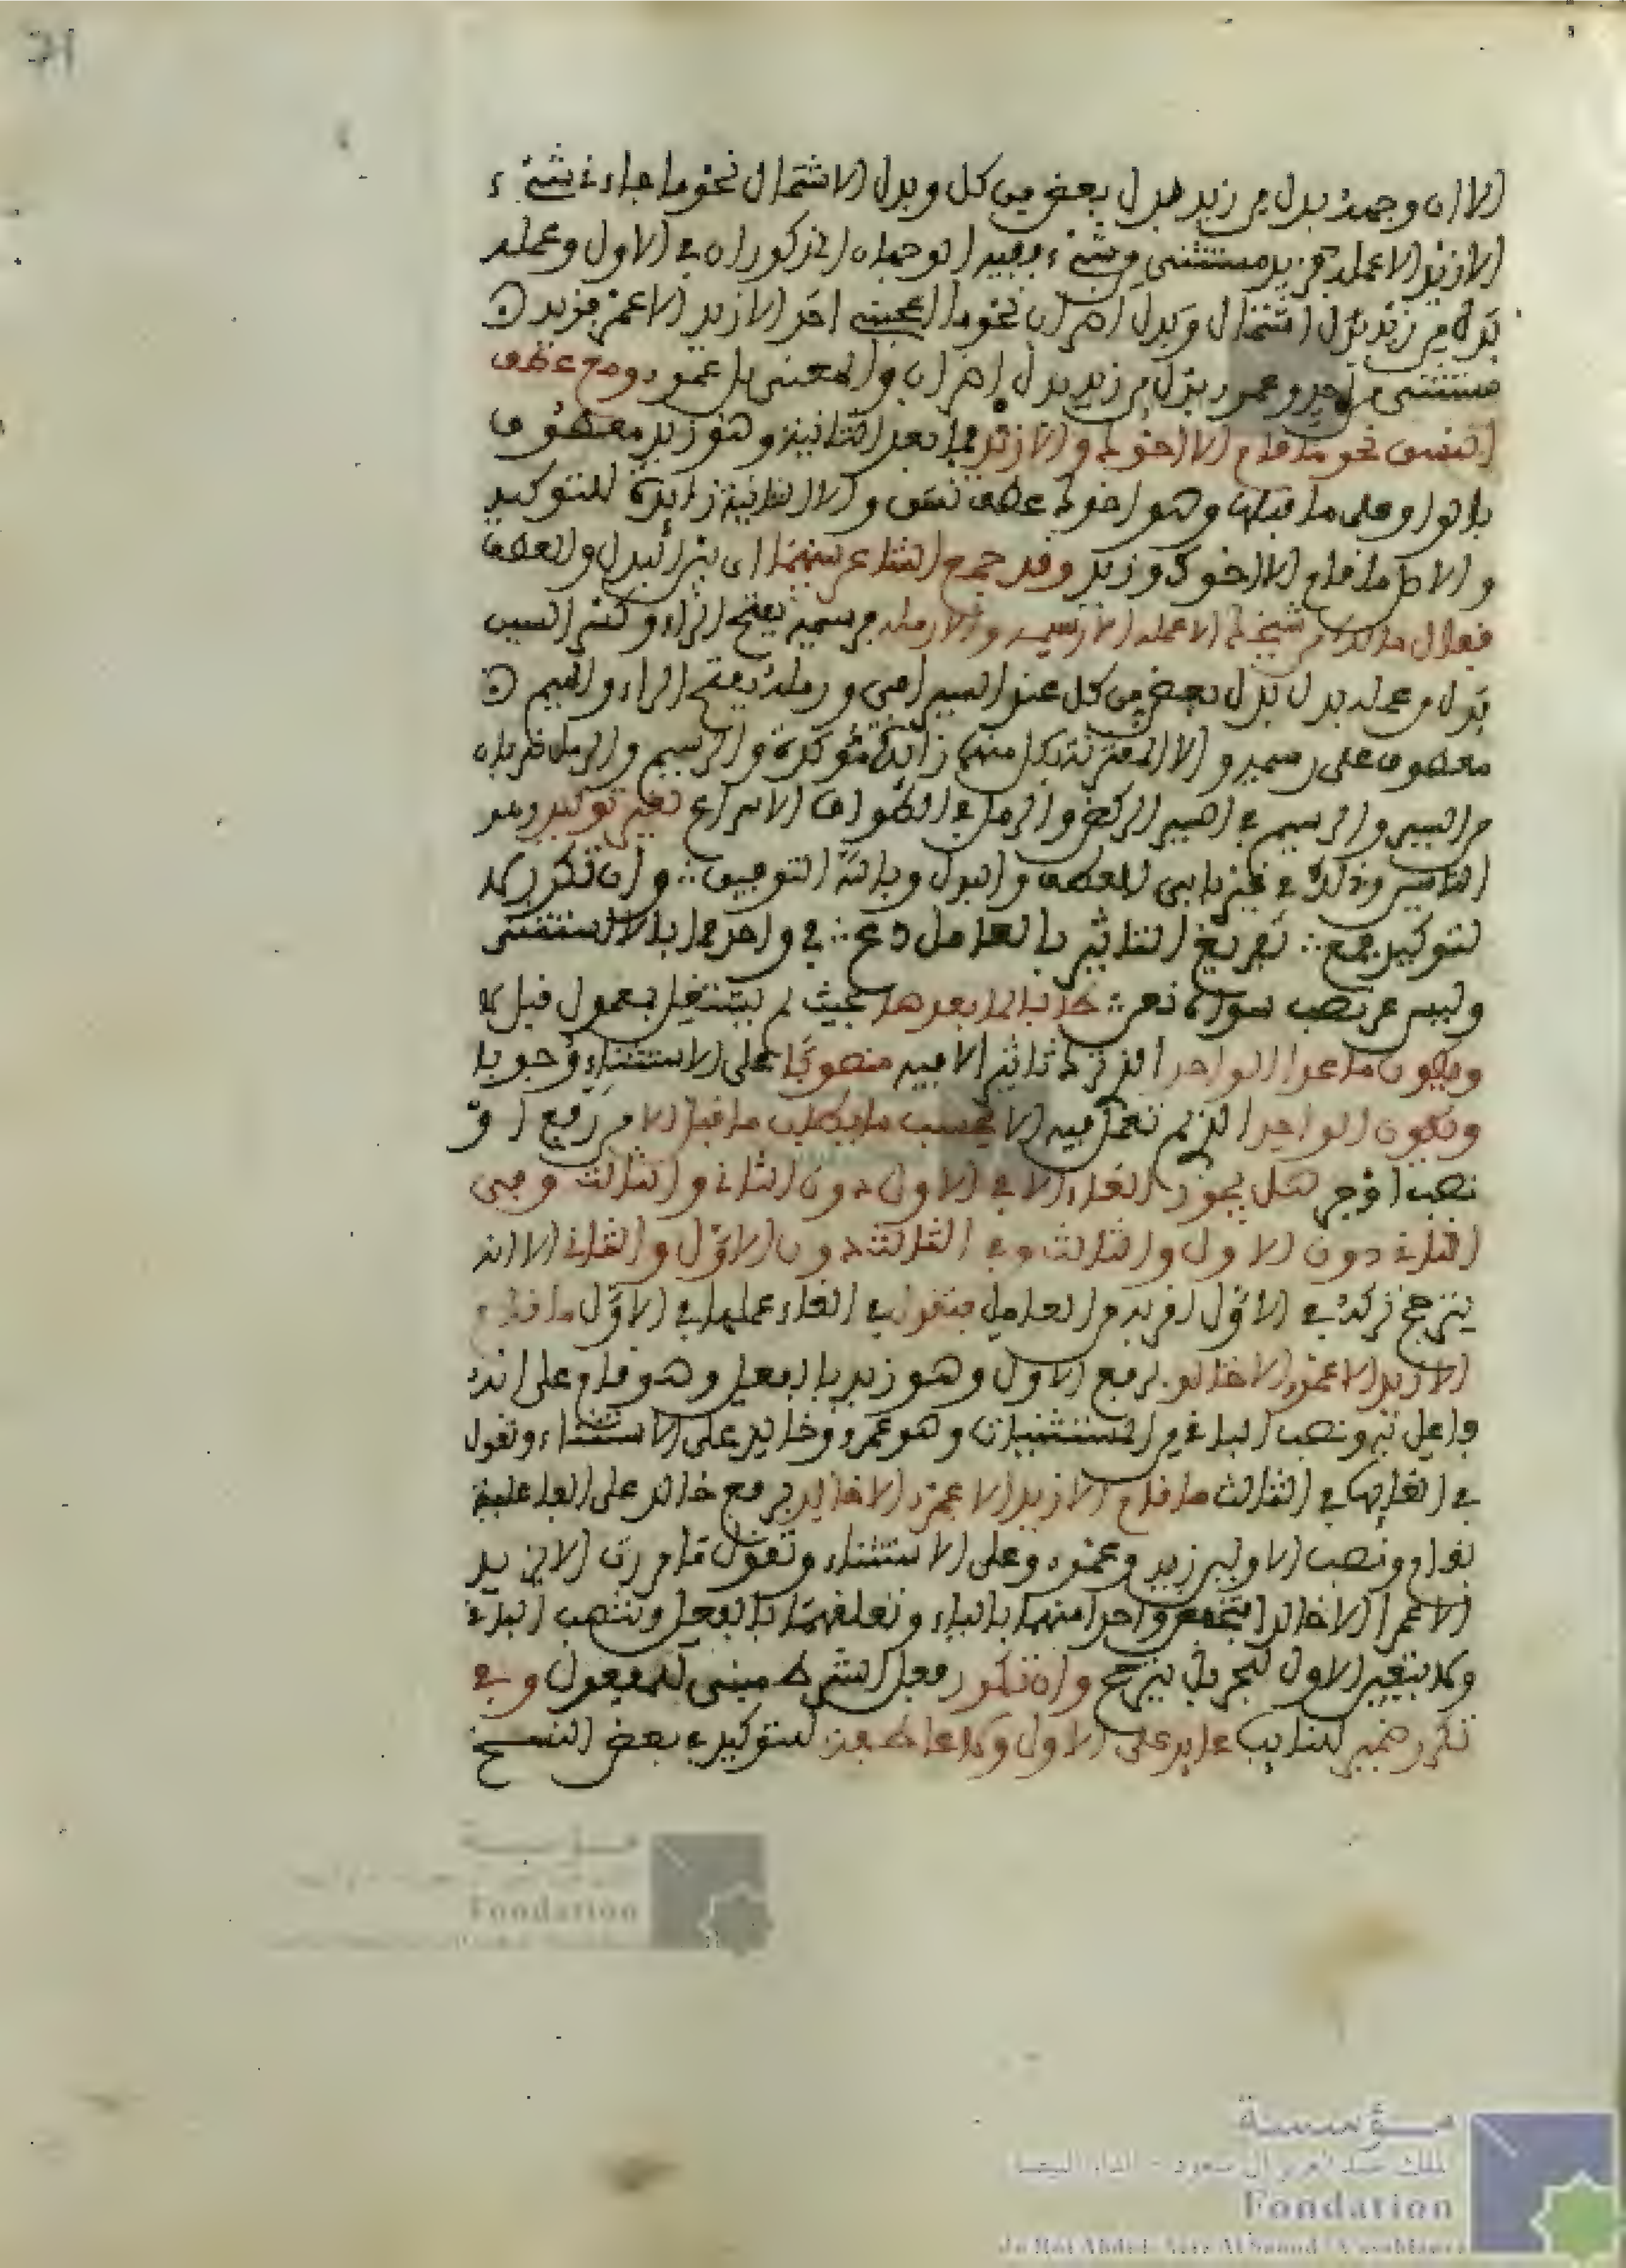 71
الا ان وجهه بدل من زيد بدل بعض من كل وبدل الاشتمال نحو ما جاءني شيء
الا زيد الا عمله فزيد مستثنى من شيء وفيه الوجهان المذكوران في الاول وعمله
بدل من زيد بدل اشتمال وبدل اضراب نحو ما اعجبني احد الا زيد الا عمر فزيد
مستثنى من احد وعمرو بدل من زيد بدل اضراب والمعنى بل عمرو ومع عطف
النسق نحو ما قام الا اخوك والا زيد فما بعد الثانية وهو زيد معطوف
بالواو على ما قبلها وهو اخوك عطف نسق والا الثانية زايدة للتوكيد
والاصل ما قام الا اخوك وزيد وقد جمع الشاعر بينهما اي بين البدل والعطف
فقال مالك من شيخك الا عمله الا رسيمه والا رمله فرسيمه بفتح الراء وكسر السين
بدل من عمله بدل بعض من كل عند السيرافي ورمله بفتح الراء والميم
معطوف على رسيمه والا المقترنة بكل منهما زايدة مؤكدة والرسيم والرمل ضربان
من السير والرسيم في السير الركض والرمل في الطواف الاسراع لغير توكيد وهو
التاسيس وذلك في غير بابي العطف والبدل وبالله التوفيق وان تكرر لا
لتوكيد فمع تفريغ التاثير بالعامل دع في واحد مما بالا استثني
وليس عن نصب سواه مغن كذا بالما بعدها بحيث لم يشتغل بمعمول قبل الا
ويكون ما عدا الواحد الذي ترك تاثير الا فيه منصوبا على الاستثناء وجوبا
ويكون الواحد الذي لم تعمل فيه الا بحسب ما يطلب ما قبل الا من رفع او
نصب او جر هل يجوز الغاء الا في الاول دون الثاني والثالث وفي
الثاني دون الاول والثالث وفي الثالث دون الاول والثاني الا انه
يترجح تركه في الاول لقربه من العامل فتقول في الغاء عملها في الاول ما قام
الا زيد الا عمرا الا خالدا برفع الاول وهو زيد بالفعل وهو قام على انه
فاعل به ونصب الباقي من المستثنيات وهو عمرو وخالد على الاستثناء وتقول
في الغايها في الثالث ما قام الا زيدا الا عمرا الا خالد برفع خالد على الفاعلية
بقام ونصب الاولين زيد وعمرو على الاستثناء وتقول ما مررت الا بزيد
الا عمرا الا خالدا فتخفض واحدا منهما بالباء وتعلقهما بالفعل وتنصب الباقي
ولا يتعين الاول للجر بل يترجح وان تكرر فعل الشرط مبني للمفعول وفي
تكرر ضمير للنايب عايد على الاول ولا عاطفة لتوكيد في بعض النسخ
مؤسسة
الملك عبد العزيز آل سعود - الدار البيضاء
Fondation
du Roi Abdul-Aziz Al Saoud / Casablanca